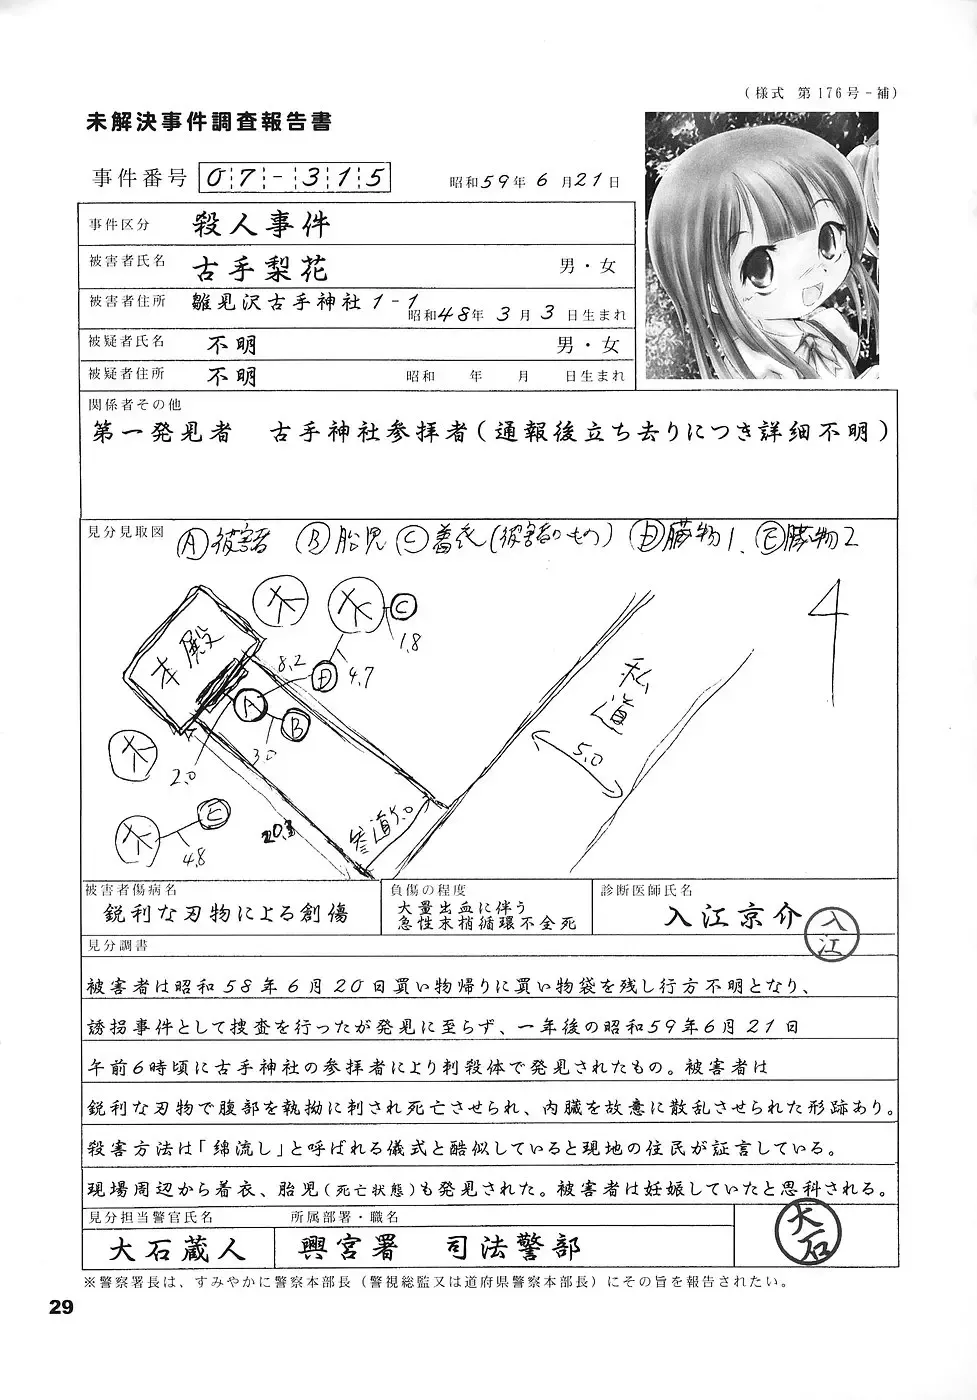 (様式 第176号-補)
未解決事件調査報告書
事件番号 07-315 昭和59年6月21日
事件区分 殺人事件
被害者氏名 古手梨花 男・女
被害者住所 雛見沢古手神社1-1 昭和48年3月3日生まれ
被疑者氏名 不明 男・女
被疑者住所 不明 昭和 年 月 日生まれ
関係者その他
第一発見者 古手神社参拝者(通報後立ち去りにつき詳細不明)
見分見取図 Ⓐ被害者 Ⓑ胎児 Ⓒ着衣(被害者のもの) Ⓓ臓物1、Ⓔ臓物2
木
木
C
4
1.8
本殿
8.2
D
4.7
私道
A
B
5.0
3.0
木
2.0
E
参道5.0
20.3
木
4.8
被害者傷病名 負傷の程度 診断医師氏名
鋭利な刃物による創傷
大量出血に伴う
急性末梢循環不全死
入江京介 入江
見分調書
被害者は昭和58年6月20日買い物帰りに買い物袋を残し行方不明となり、
誘拐事件として捜査を行ったが発見に至らず、一年後の昭和59年6月21日
午前6時頃に古手神社の参拝者により刺殺体で発見されたもの。被害者は
鋭利な刃物で腹部を執拗に刺され死亡させられ、内臓を故意に散乱させられた形跡あり。
殺害方法は「綿流し」と呼ばれる儀式と酷似していると現地の住民が証言している。
現場周辺から着衣、胎児(死亡状態)も発見された。被害者は妊娠していたと思科される。
見分担当警官氏名 所属部署・職名
大石蔵人 興宮署 司法警部 大石
※警察署長は、すみやかに警察本部長(警視総監又は道府県警察本部長)にその旨を報告されたい。
29